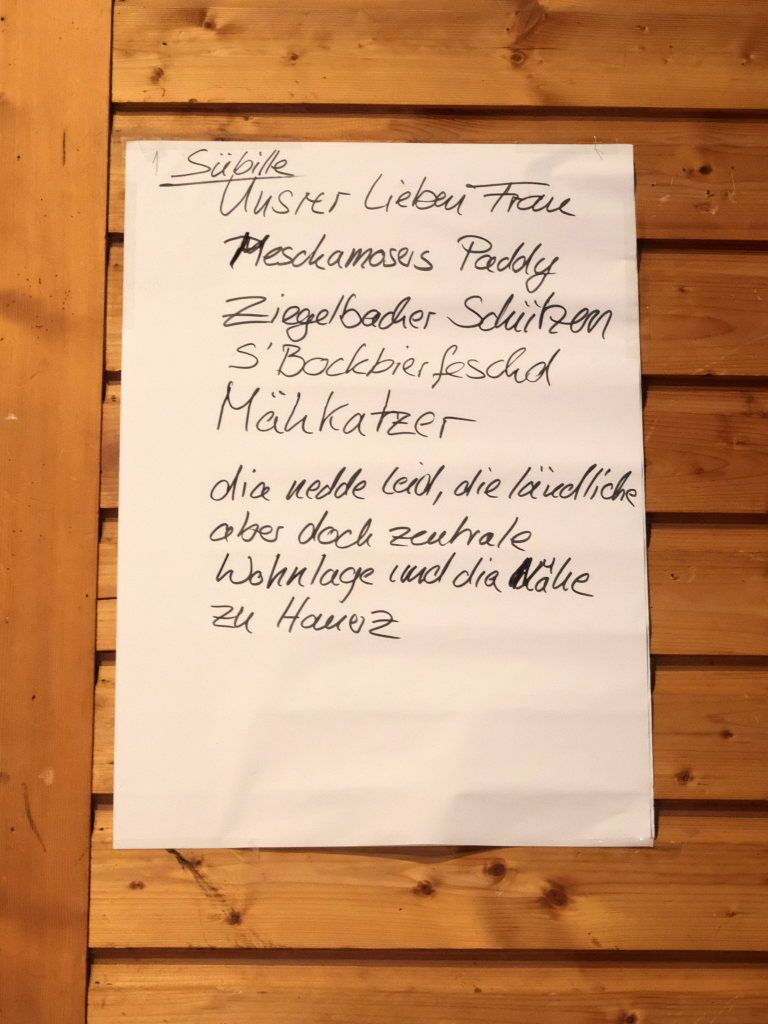 Sübille
Unsrer Lieben Frau
Meschamosers Paddy
Ziegelbacher Schützen
S'Bockbierfeschd
Mähkatzer
dia nedde Leid, die ländliche
aber doch zentrale
Wohnlage und dia Nähe
zu Hauerz